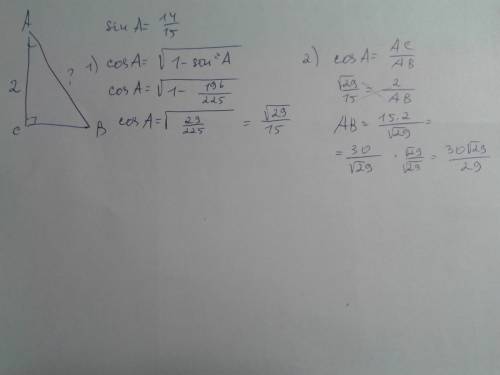 A
2
?
C
B
sin A = 14/15
1) cos A = √(1 - sin²A)
cos A = √(1 - 196/225)
cos A = √(29/225) = √29/15
2) cos A = AC/AB
√29/15 = 2/AB
AB = 15·2/√29 =
= 30/√29 · √29/√29 = 30√29/29